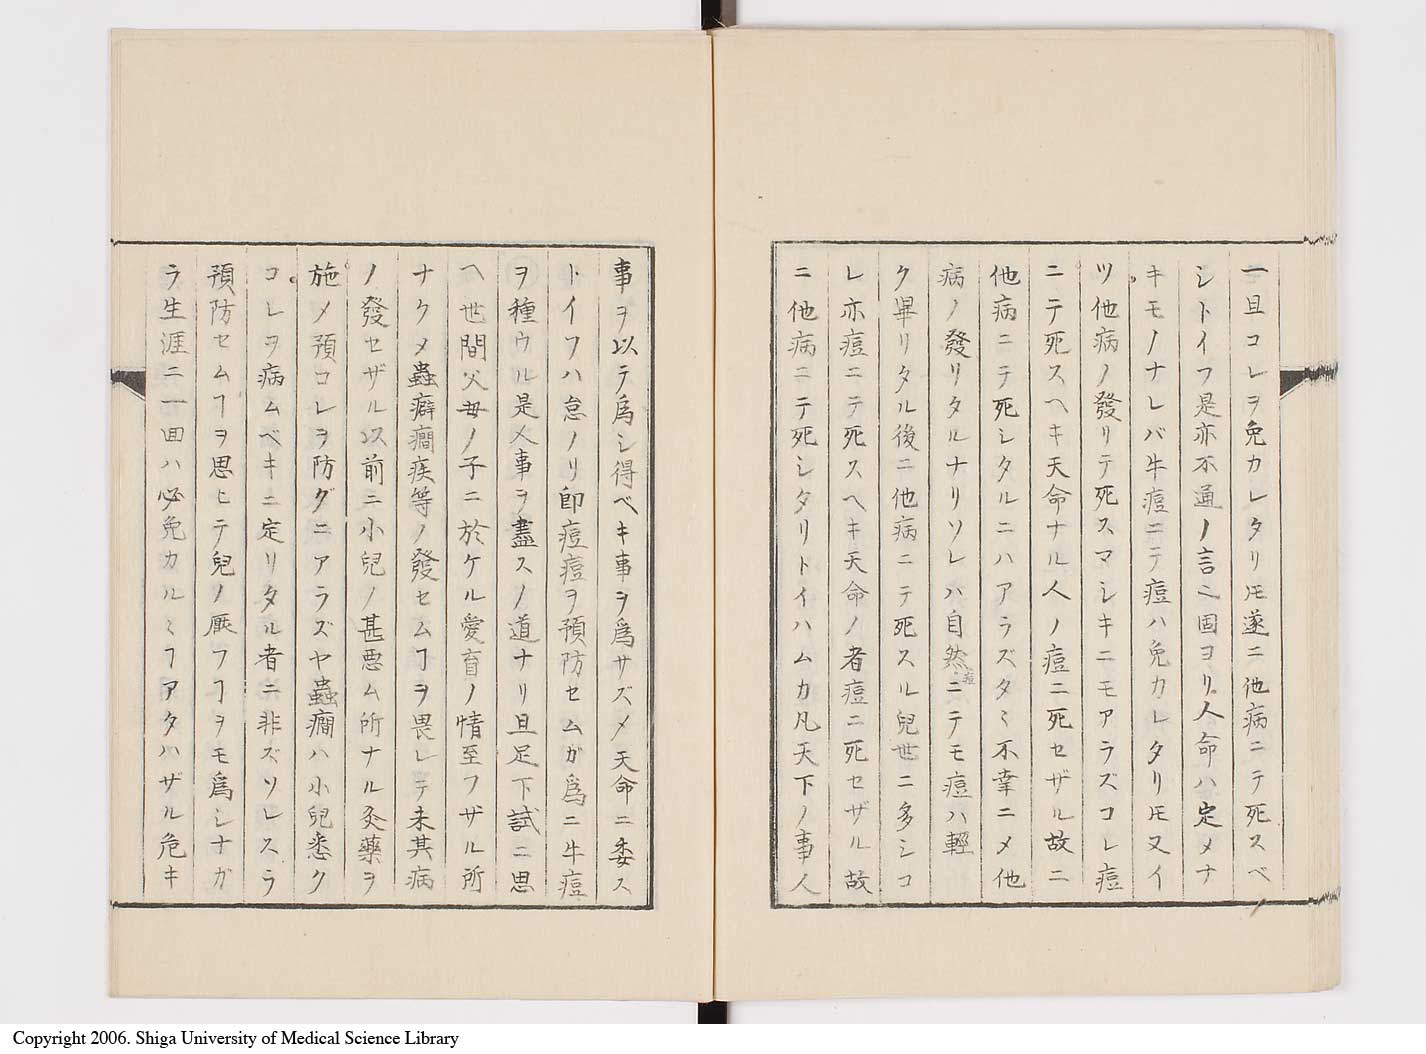 一旦コレヲ免カレタリ𪜈遂ニ他病ニテ死スベ
シトイフ是亦不通ノ言也固ヨリ人命ハ定メナ
キモノナレバ牛痘ニテ痘ハ免カレタリ𪜈又イ
ツ他病ノ發リテ死スマシキニモアラズコレ痘
ニテ死スヘキ天命ナル人ノ痘ニ死セザル故ニ
他病ニテ死シタルニハアラズタヾ不幸ニメ他
病ノ發リタルナリソレハ自然痘ニテモ痘ハ輕
ク畢リタル後ニ他病ニテ死スル兒世ニ多シコ
レ亦痘ニテ死スヘキ天命ノ者痘ニ死セザル故
ニ他病ニテ死シタリトイハムカ凡天下ノ事人
事ヲ以テ爲シ得ベキ事ヲ爲サズメ天命ニ委ス
トイフハ怠ノリ卽痘痘ヲ預防セムガ爲ニ牛痘
ヲ種ウル是乂事ヲ盡スノ道ナリ且足下試ニ思
ヘ世間父母ノ子ニ於ケル愛育ノ情至ラザル所
ナクメ蟲癖癇疾等ノ發セムヿヲ畏レテ未其病
ノ發セザル以前ニ小兒ノ甚悪ム所ナル灸藥ヲ
施メ預コレヲ防グニアラズヤ蟲癇ハ小兒悉ク
コレヲ病ムベキニ定リタル者ニ非ズソレスラ
預防セムヿヲ思ヒテ兒ノ厭フヿヲモ爲シナガ
ラ生涯ニ一回ハ必免カルヽヿアタハザル危キ
Copyright 2006. Shiga University of Medical Science Library